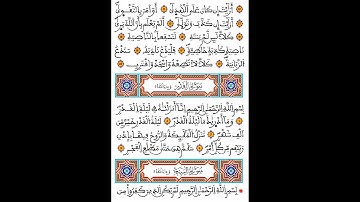 أرأيت إن كان على الهدى أو أمر بالتقوى
أرأيت إن كذب وتولى ألم يعلم بأن الله يرى
كلا لئن لم ينته لنسفعا بالناصية
ناصية كاذبة خاطئة فليدع ناديه سندع
الزبانية كلا لا تطعه واسجد واقترب
سورة القدر
بسم الله الرحمن الرحيم إنا أنزلناه في ليلة القدر
وما أدراك ما ليلة القدر ليلة القدر خير من
ألف شهر تنزل الملائكة والروح فيها بإذن
ربهم من كل أمر سلام هي حتى مطلع الفجر
سورة البينة
بسم الله الرحمن الرحيم لم يكن الذين كفروا من